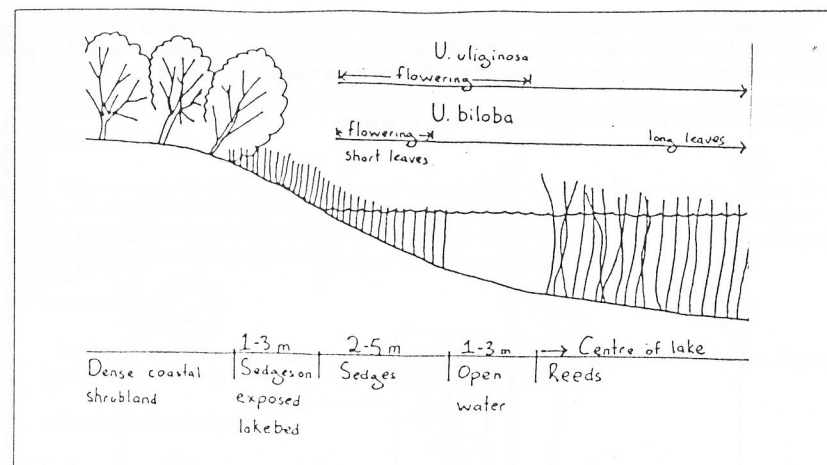 U. uliginosa
flowering
U. biloba
flowering
long leaves
short leaves
1-3 m
2-5 m
1-3 m
→ Centre of lake
Dense coastal
shrubland
Sedges on
exposed
lakebed
Sedges
Open
water
Reeds